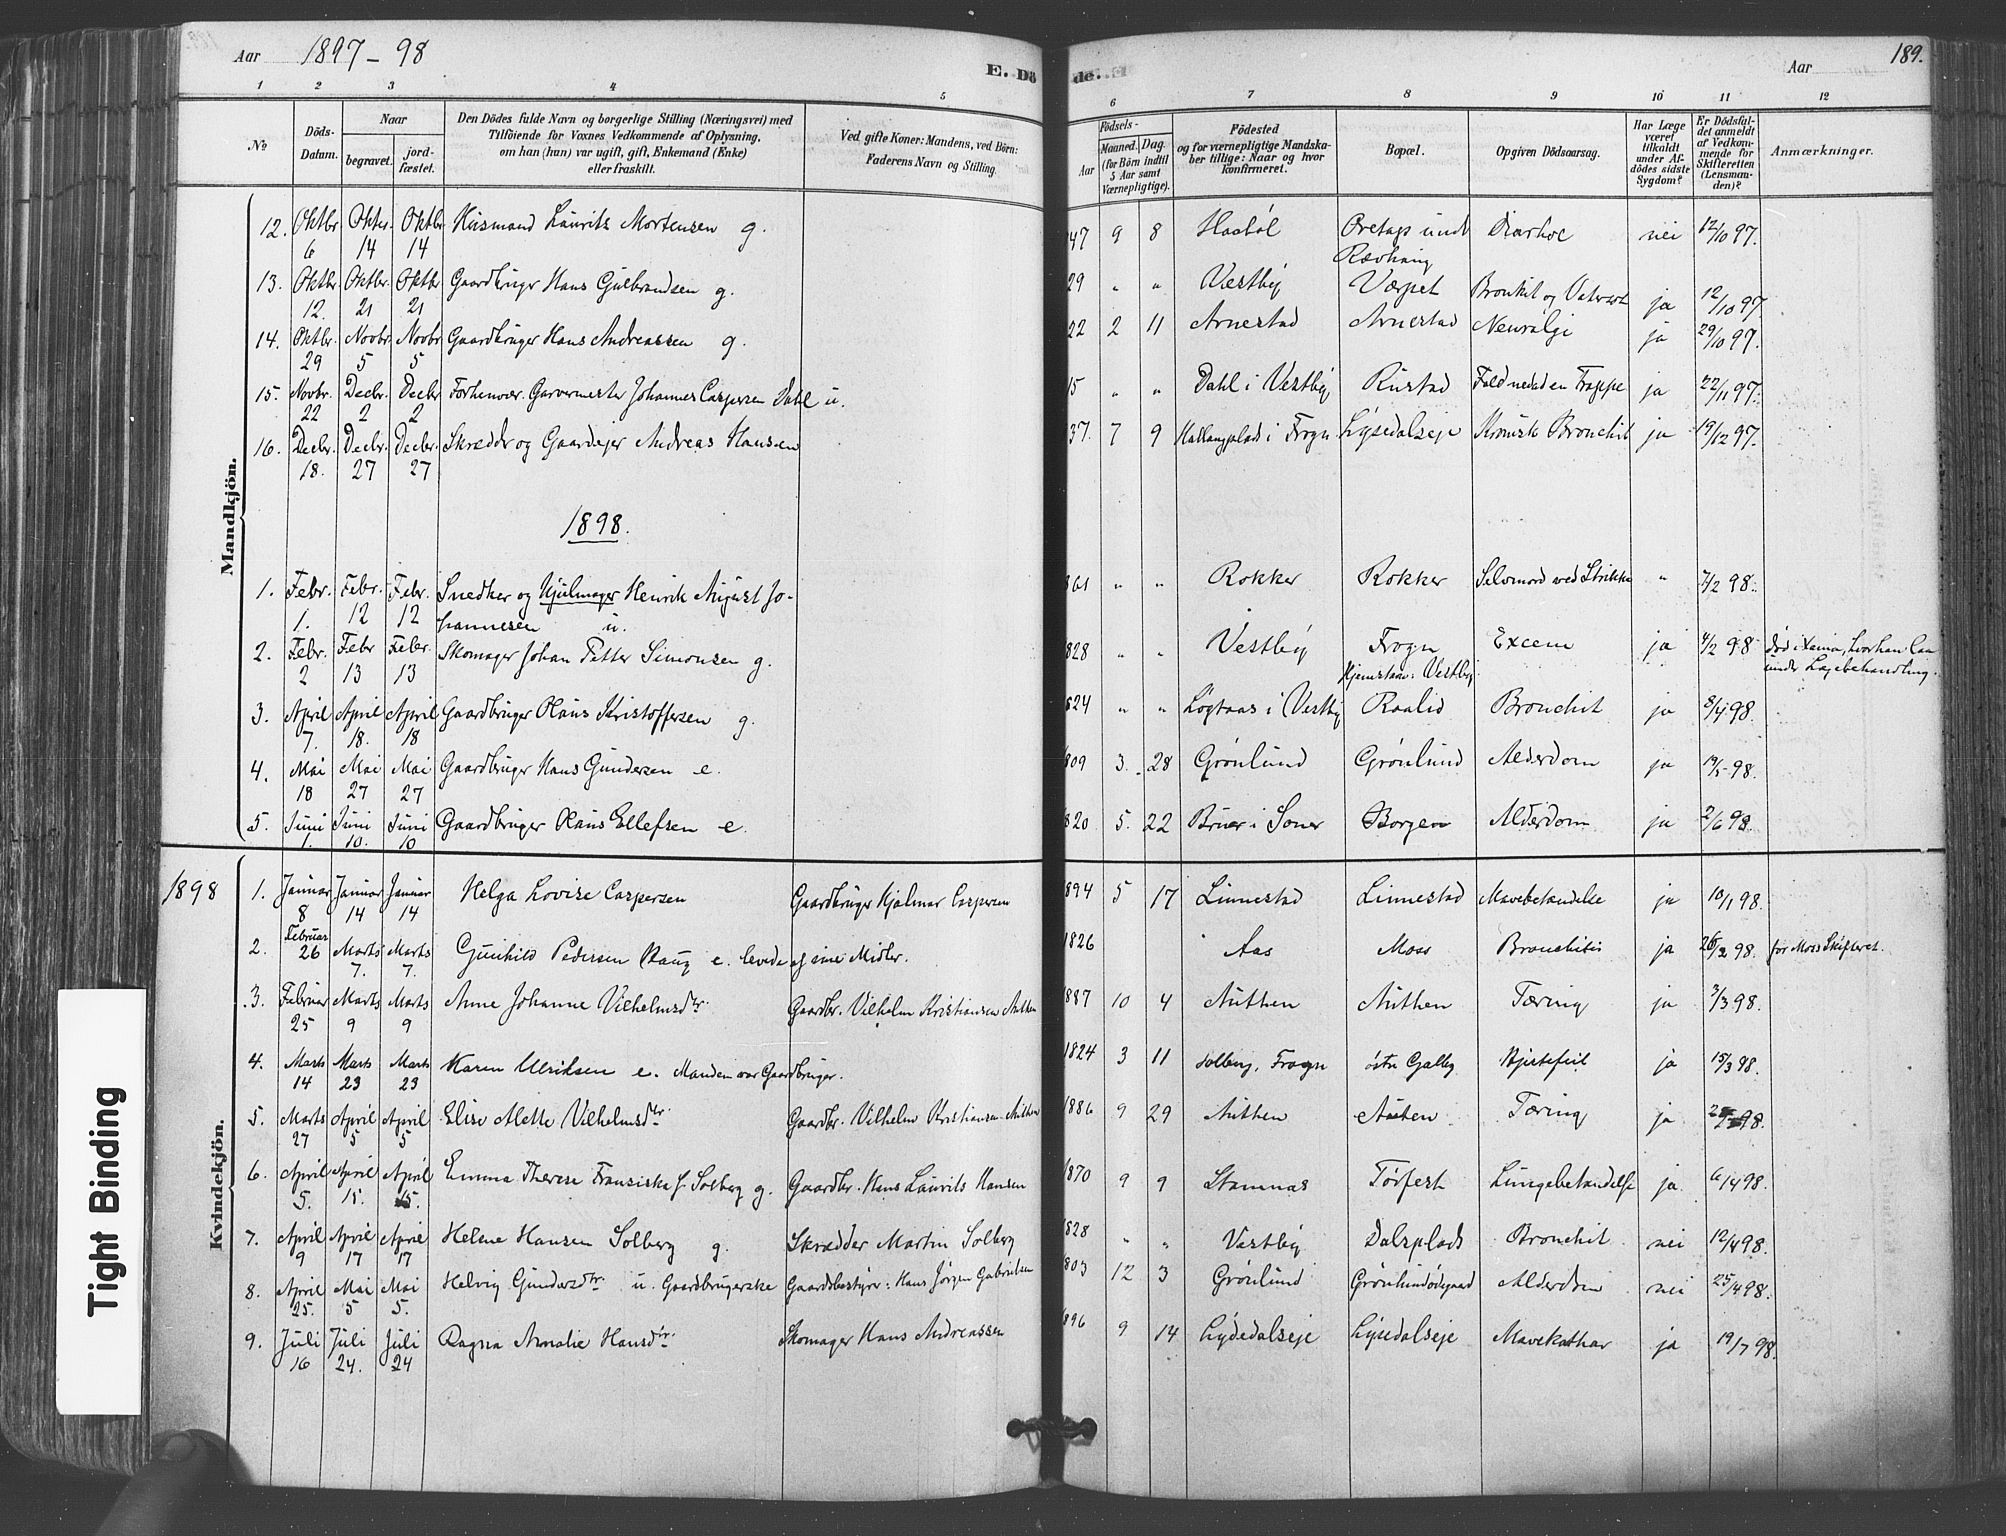 Aar 1897-98
E. Döde.
Aar 189.
1 2 3 4 5 6 7 8 9 10 11 12
No
Döds-Datum.
Naar
begravet.
jordfæstet.
Den Dödes fulde Navn og borgerlige Stilling (Næringsvei) med
Tilföiende for Voxnes Vedkommende af Oplysning,
om han (hun) var ugift, gift, Enkemand (Enke)
eller fraskilt.
Ved gifte Koner: Mandens, ved Börn:
Faderens Navn og Stilling.
Födsels-
Aar
Maaned. Dag.
(for Börn indtil
5 Aar samt
Værnepligtige).
Födested
og for værnepligtige Mandskaber tillige: Naar og hvor
konfirmeret.
Bopæl.
Opgiven Dödsaarsag.
Har Læge
været
tilkaldt
under Afdödes sidste
Sygdom?
Er Dödsfaldet anmeldt
af Vedkommende for
Skifteretten
(Lensmanden)?
Anmærkninger.
Mandkjön.
12. Oktbr. 6 Oktbr. 14 Oktbr 14 Husmand Laurits Mortensen g. 47 9 8 Diarhoe nei 12/10 97.
13. Oktbr. 12. Oktbr. 21 Oktbr 21 Gaardbruger Hans Gulbrandsen g. 29 " " Vestby Værpet Bronkit og Vatersot ja 12/10 97
14. Oktbr. 29 Novbr 5 Novbr 5 Gaardbruger Hans Andreassen g. 22 2 11 Arnestad Arnestad Neuralgi ja 29/10 97.
15. Novbr. 22 Decbr. 2 Decbr 2 Forhenvær. Garvermester Johannes Caspersen Dahl u. 15 " " Dahl i Vestby Rustad Fald nedad en Trappe ja 22/11 97.
16. Decbr. 18. Decbr. 27 Decbr. 27 Skrædder og Gaardejer Andreas Hansen 37. 7 9 Hallangplads i Frogn Lysedalseje Kronisk Bronchit ja 19/12 97.
1898.
1. Febr. 1. Febr. 12 Febr. 12 Snedker og Hjulmager Henrik August Johannesen u. 861 " " Rokker Rokker Selvmord ved Strikke " 7/2 98.
2. Febr. 2 Febr 13 Febr. 13 Skomager Johan Petter Simonsen g. 828 " " Vestby Frogn Hjemstavn: Vestby Excem ja 4/2 98 under Lægebehandling.
3. April 7. April 18. April 18 Gaardbruger Hans Kristoffersen g. 824 " " Løgtaas i Vestby Raalid Bronchit ja 8/4 98.
4. Mai 18 Mai 27 Mai 27 Gaardbruger Hans Gundersen e. 809 3. 28 Grønlund Grønlund Alderdom ja 19/5 98.
5. Juni 1. Juni 10. Juni 10 Gaardbruger Hans Ellefsen e. 820 5. 22 Bruer i Soner Borgen Alderdom ja 2/6 98.
Kvindekjön.
1898 1. Januar 8 Januar 14 Januar 14 Helga Lovise Caspersen Gaardbruger Hjalmar Caspersen 1894 5 17 Linnestad Linnestad Mavebetændelse ja 10/1 98.
2. Februar 26 Marts 7. Marts 7. Gunhild Pedersen Haug e. levede af sine Midler. 1826 Aas Moss Bronchitis ja 26/2 98. for Moss Skifteret.
3. Februar 25 Marts 9 Marts 9 Anne Johanne Vilhelmsdtr. Gaardbr. Vilhelm Kristiansen Authen 1887 10 4 Authen Authen Tæring ja 3/3 98.
4. Marts 14 Marts 23 Marts 23 Karen Ulriksen e. Manden var Gaardbruger. 1824 3 11 Solberg, Frogn østre Galby Hjertefeil ja 15/3 98.
5. Marts 27 April 5 April 5 Elise Mette Vilhelmsdtr. Gaardbr. Vilhelm Kristiansen Authen 1886 9 29 Authen Auten Tæring ja 98.
6. April 5. April 15. April 15. Emma Therese Fransiska f. Solberg g. Gaardbr. Hans Laurits Hansen 1870 9 9 Stamnas Tørfest Lungebetændelse ja 6/4 98.
7. April 9 April 17 April 17 Helene Hansen Solberg g. Skrædder Martin Solberg 1828 " " Vestby Dalsplads Bronchit nei 12/4 98.
8. April 25. Mai 5 Mai 5. Helvig Gundersdtr. u. Gaardbrugerske Gaardsbestyrer: Hans Jørgen Gabrielsen 1803 12 3 Grønlund Grønlundødegaard Alderdom nei 25/4 98.
9. Juli 16 Juli 24. Juli 24 Ragna Amalie Hansdtr. Skomager Hans Andreassen 1896 9 14 Lysedalseje Lysedalseje Mavekathar ja 19/7 98.
Tight Binding